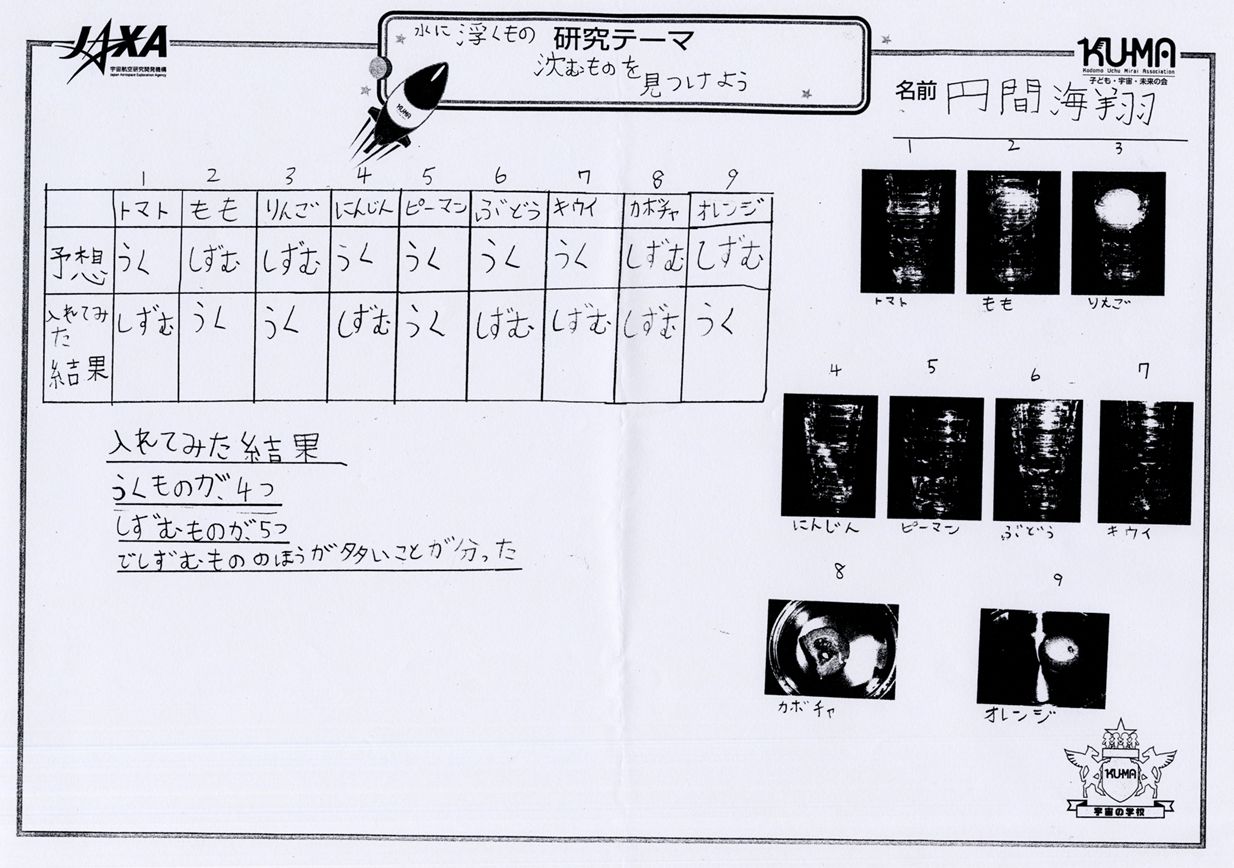 JAXA
宇宙航空研究開発機構
Japan Aerospace Exploration Agency
水に浮くもの 研究テーマ
沈むものを見つけよう
KUMA
KU-MA
Kodomo Uchu Mirai Association
子ども・宇宙・未来の会
名前 円間海翔
1 2 3 4 5 6 7 8 9
トマト もも りんご にんじん ピーマン ぶどう キウイ カボチャ オレンジ
予想 うく しずむ しずむ うく うく うく うく しずむ しずむ
入れてみた結果 しずむ うく うく しずむ うく しずむ しずむ しずむ うく
入れてみた結果
うくものが、4つ
しずむものが、5つ
でしずむもののほうが多いことが分った
1 2 3
トマト もも りんご
4 5 6 7
にんじん ピーマン ぶどう キウイ
8 9
カボチャ オレンジ
KU-MA
宇宙の学校